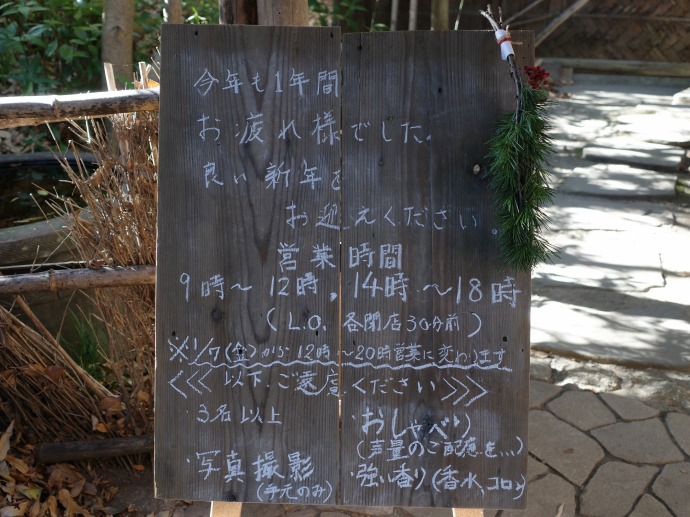 今年も1年間
お疲れ様でした。
良い新年を
お迎えください。
営業時間
9時〜12時,14時〜18時
(L.O. 各閉店30分前)
※1/7(金)から12時〜20時営業に変わります
<<< 以下、ご遠慮ください >>>
3名以上
・おしゃべり
(声量のご配慮を...)
・写真撮影
(手元のみ)
・強い香り(香水、コロン)